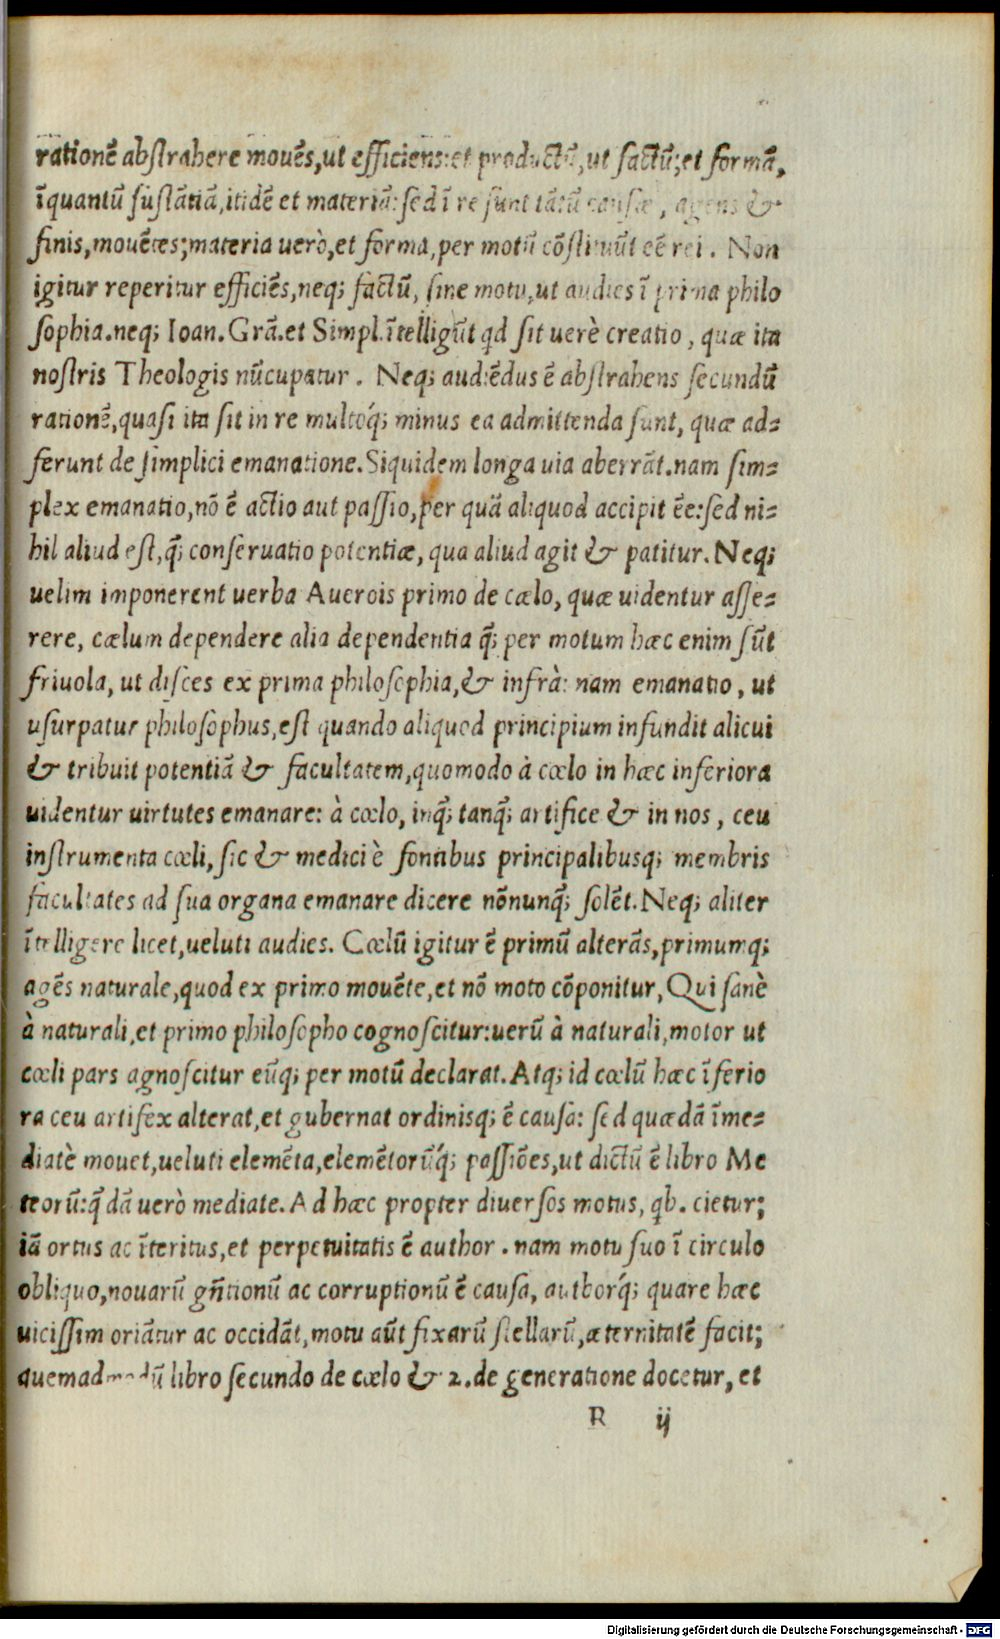 rationē abstrahere mouēs,ut efficiens:et productū,ut factū;et formā,
īquantū sustātiā,itidē et materiā:sed ī re sunt tātū causæ, agens &
finis,mouētes;materia uerò,et forma,per motū cōstituūt eē rei. Non
igitur reperitur efficiēs,neq; factū, sine motu,ut audies ī prima philo
sophia.neq; Ioan.Grā.et Simpl.ītelligūt qd sit uerè creatio, quæ ita
nostris Theologis nūcupatur. Neq; audiēdus ē abstrahens secundū
rationē,quasi ita sit in re multoq́; minus ea admittenda sunt, quæ ad=
ferunt de simplici emanatione.Siquidem longa uia aberrāt.nam sim=
plex emanatio,nō ē actio aut passio,per quā aliquod accipit ēe:sed ni=
hil aliud est,q̄; conseruatio potentiæ, qua aliud agit & patitur. Neq;
uelim imponerent uerba Auerois primo de cælo, quæ uidentur asse=
rere, cælum dependere alia dependentia q̄; per motum hæc enim sūt
friuola, ut disces ex prima philosophia,& infrà: nam emanatio, ut
usurpatur philosophus,est quando aliquod principium infundit alicui
& tribuit potentiā & facultatem,quomodo à cœlo in hæc inferiora
uidentur uirtutes emanare: à cœlo, inq̄; tanq̄; artifice & in nos, ceu
instrumenta cœli, sic & medici è fontibus principalibusq; membris
facultates ad sua organa emanare dicere nōnunq̄; solēt. Neq; aliter
ītelligere licet,ueluti audies. Cœlū igitur ē primū alterās,primumq;
agēs naturale,quod ex primo mouēte,et nō moto cōponitur, Qui sanè
à naturali,et primo philosopho cognoscitur:uerū à naturali,motor ut
cœli pars agnoscitur eūq; per motū declarat.Atq; id cœlū hæc īferio
ra ceu artifex alterat,et gubernat ordinisq; ē causa: sed quædā īme=
diatè mouet,ueluti elemēta,elemētorūq́; passiōes,ut dictū ē libro Me
teorū:q̄dā uerò mediate. Ad hæc propter diuersos motus, qb. cietur;
iā ortus ac īteritus,et perpetuitatis ē author. nam motu suo ī circulo
obliquo,nouarū gn̄tionū ac corruptionū ē causa, authorq́; quare hæc
uicissim oriātur ac occidāt,motu aūt fixarū stellarū,æternitatē facit;
quemadmodū libro secundo de cœlo & 2.de generatione docetur, et
R ij
Digitalisierung gefördert durch die Deutsche Forschungsgemeinschaft - DFG